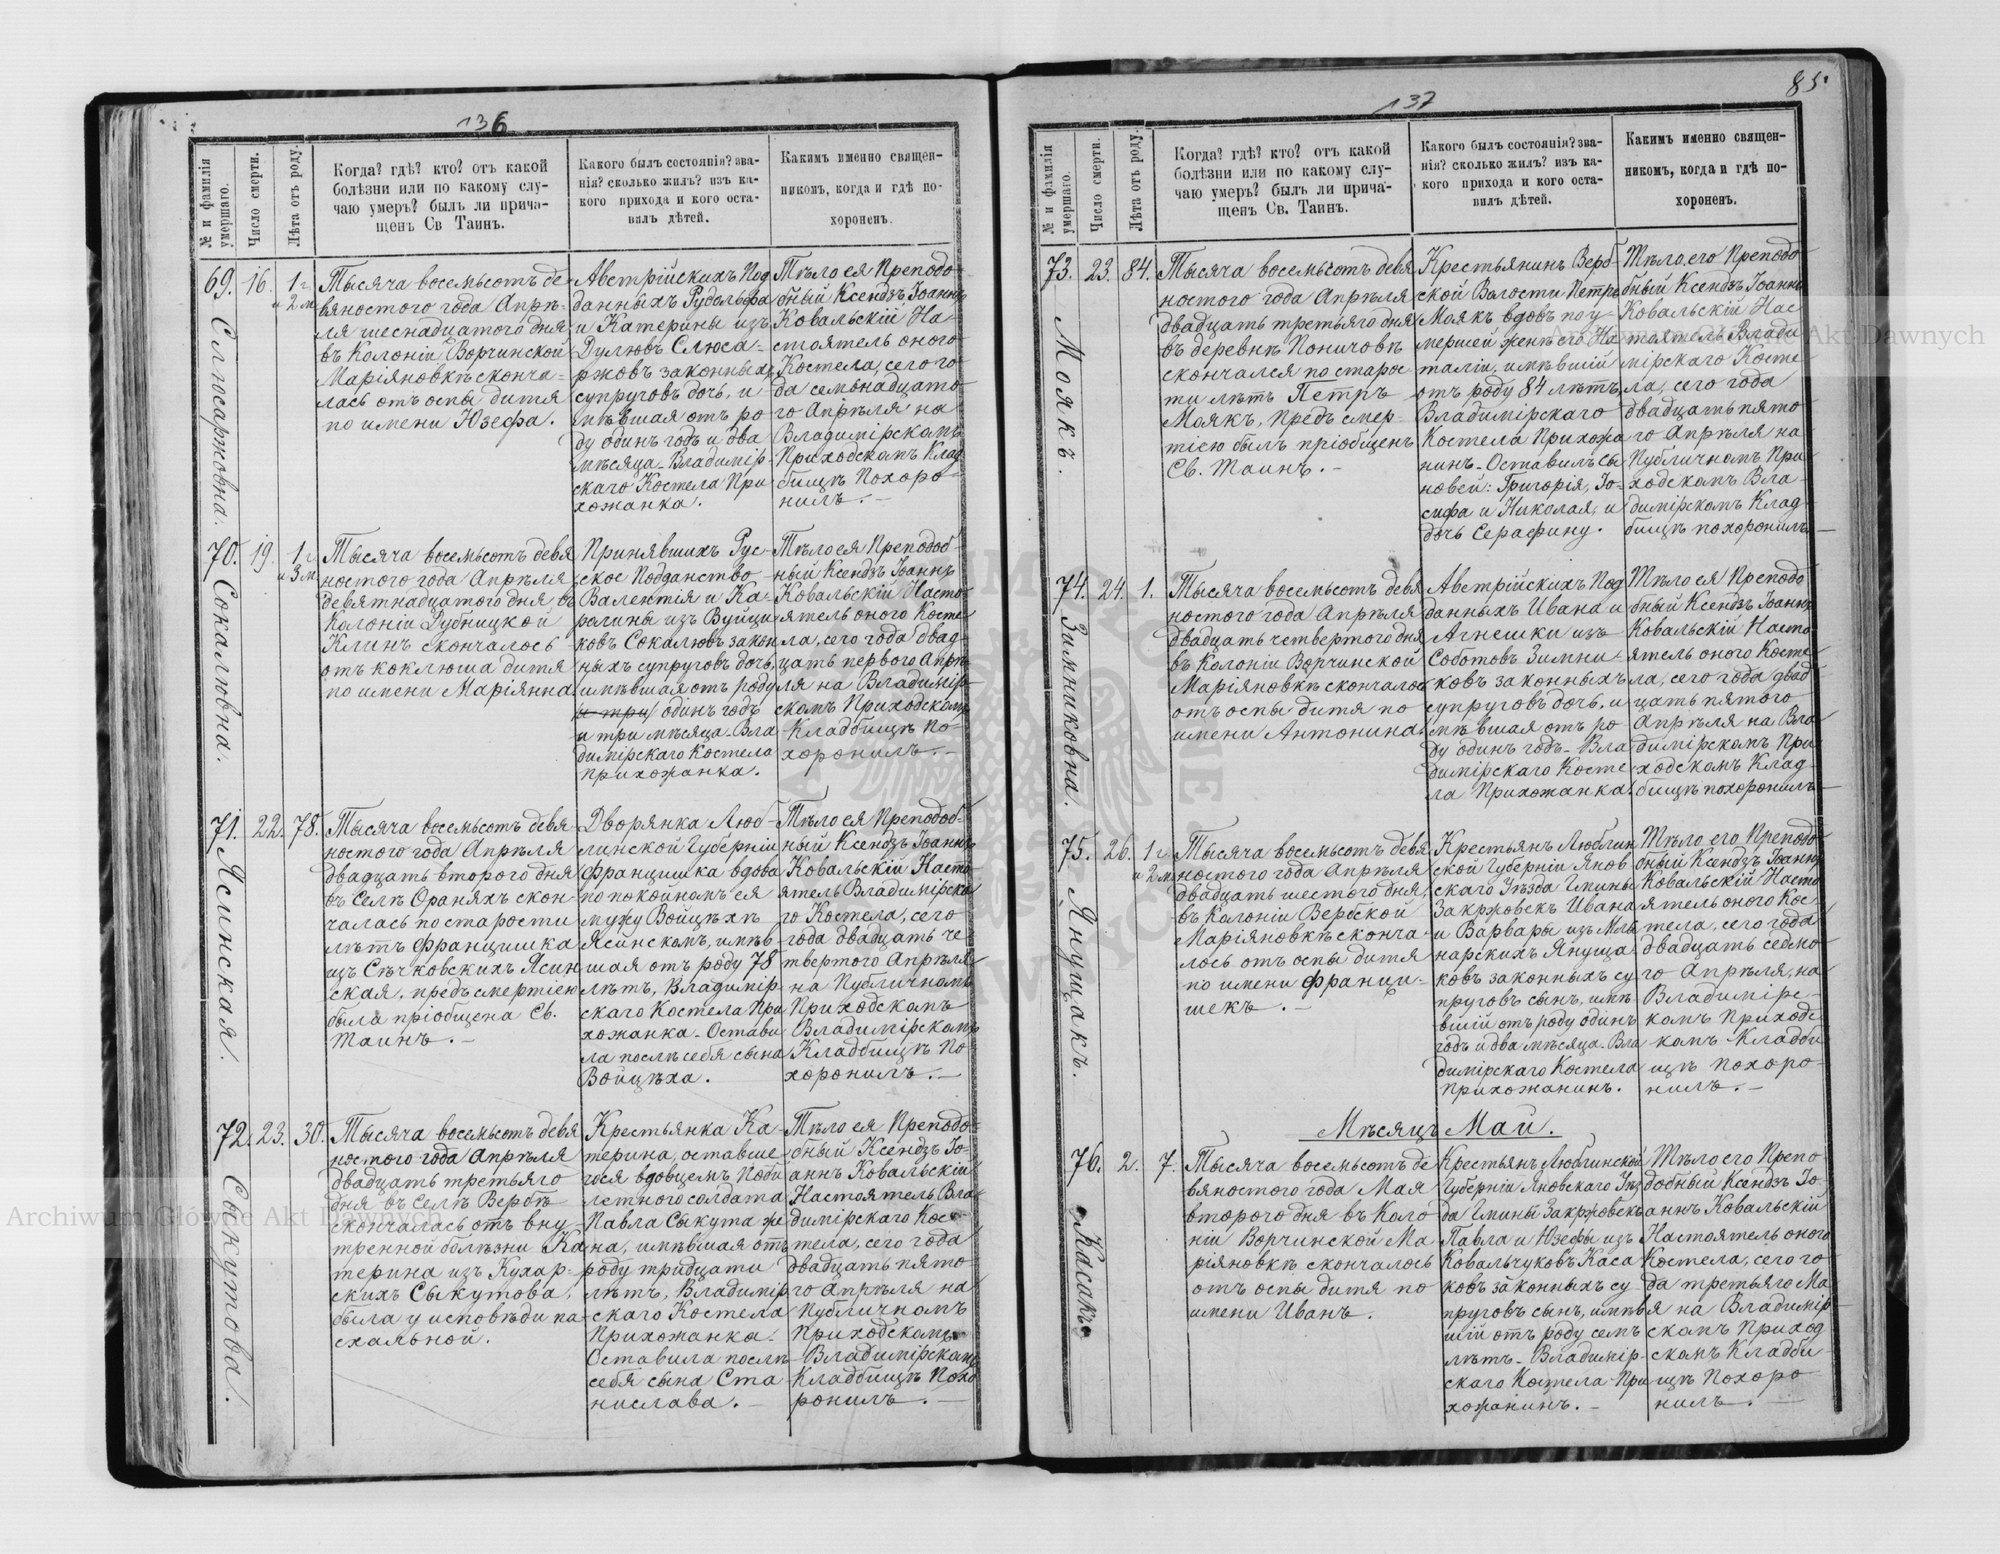 136
№ и фамилія умершаго.
Число смерти.
Лѣта отъ роду.
Когда? гдѣ? кто? отъ какой
болѣзни или по какому слу-
чаю умеръ? былъ ли прича-
щенъ Св Таинъ.
Какого былъ состоянія? зва-
нія? сколько жилъ? изъ ка-
кого прихода и кого оста-
вилъ дѣтей.
Какимъ именно священ-
никомъ, когда и гдѣ по-
хороненъ.
69.
16.
1 г.
и 2 м.
Тысяча восемьсотъ де-
вяностого года Апрѣ-
ля шеснадцатого дня
въ Колоніи Ворчинской
Маріяновкѣ сконча-
лась отъ оспы дитя
по имени Юзефа.
Австрійскихъ Под
данныхъ Рудольфа
и Катерины изъ
Дулювъ Слюса-
ржовъ законныхъ
супруговъ дочь, и
мѣвшая отъ ро
ду одинъ годъ и два
мѣсяца. Владимір-
скаго Костела При
хожанка.
Тѣло ея Преподо-
бный Ксендзъ Іоаннъ
Ковальскій На-
стоятель оного
Костела, сего го-
да семьнадцато-
го Апрѣля на
Владимірскомъ
Приходскомъ Клад
бищѣ Похоро-
нилъ. —
70.
Сокалювна.
19.
1 г.
и 3 м.
Тысяча восемьсотъ девя
ностого года Апрѣля
девятнадцатого дня въ
Колоніи Дубницкой
Клинъ скончалось
отъ коклюша дитя
по имени Маріянна
Принявшихъ Рус-
ское Подданство
Валентія и Ка-
ролины изъ Вуйци
ковъ Сокалювъ закон
ныхъ супруговъ дочь,
имѣвшая отъ роду
и три одинъ годъ
и три мѣсяца. Вла
димірскаго Костела
прихожанка.
Тѣло ея Преподоб-
ный Ксендзъ Іоаннъ
Ковальскій Насто-
ятель оного Косте
ла, сего года двад-
цать первого Апрѣ
ля на Владимір-
скомъ Приходскомъ
Кладбищѣ По-
хоронилъ. —
71.
Ясинская.
22.
78.
Тысяча восемьсотъ девя
ностого года Апрѣля
двадцать второго дня
въ СелѣОраняхъ скон-
чалась по старости
лѣтъ Францишка
изъ Сѣчковскихъ Ясин
ская, предъ смертію
была пріобщена Св.
Таинъ. —
Дворянка Люб-
линской Губерніи
Францишка вдова
по покойномъ ея
мужу Войцѣхѣ
Ясинскомъ, имѣв-
шая отъ роду 78
лѣтъ, Владимір-
скаго Костела При
хожанка. Остави
ла послѣ себя сына
Войцѣха.
Тѣло ея Преподоб-
ный Ксендзъ Іоаннъ
Ковальскій Насто
ятель Владимірска
го Костела, сего
года двадцать че-
твертого Апрѣля
на Публичномъ
Приходскомъ
Владимірскомъ
Кладбищѣ По-
хоронилъ. —
72.
Сыкутова.
23.
30.
Тысяча восемьсотъ девя
ностого года Апрѣля
двадцать третьяго
дня въ Селѣ Вербѣ
скончалась отъ вну-
тренной болѣзни Ка
терина изъ Кухар-
скихъ Сыкутова,
была у исповѣди па-
схальной.
Крестьянка Ка-
терина, оставше
гося вдовцемъ
летного солдата
Павла Сыкута же
на, имѣвшая отъ
роду тридцати
лѣтъ, Владимір
скаго Костела
Прихожанка.
Оставила послѣ
себя сына Ста
нислава. —
Тѣло ея Преподо-
бный Ксендзъ Іо-
аннъ Ковальскій
Настоятель Вла-
димірскаго Кос-
тела, сего года
двадцать пято
го Апрѣля на
Публичномъ
Приходскомъ
Владимірскомъ
Кладбищѣ Похо
ронилъ. —
137
85.
№ и фамилія умершаго.
Число смерти.
Лѣта отъ роду.
Когда? гдѣ? кто? отъ какой
болѣзни или по какому слу-
чаю умеръ? былъ ли прича-
щенъ Св. Таинъ.
Какого былъ состоянія? зва-
нія? сколько жилъ? изъ ка-
кого прихода и кого оста-
вилъ дѣтей.
Какимъ именно священ-
никомъ, когда и гдѣ по-
хороненъ.
73.
Моякъ.
23.
84.
Тысяча восемьсотъ девя
ностого года Апрѣля
двадцать третьяго дня
въ деревнѣ Поничовѣ
скончался по старос
ти лѣтъ Петръ
Моякъ, предъ смер-
тію былъ пріобщенъ
Св. Таинъ. —
Крестьянинъ Верб-
ской Волости Петръ
Моякъ вдовъ по у-
мершей женѣ его На
таліи, имѣвшій
отъ роду 84 лѣтъ,
Владимірскаго
Костела Прихожа
нинъ. Оставилъ сы
новей: Григорія, Іо-
сифа и Николая, и
дочь Серафину.
Тѣло его Преподо
бный Ксендзъ Іоаннъ
Ковальскій Нас
тоятель Влади
мірскаго Косте-
ла, сего года
двадцать пято
го Апрѣля на
Публичномъ При-
ходскомъ Вла-
димірскомъ Клад-
бищѣ похоронилъ —
74.
Зимниковна.
24.
1.
Тысяча восемьсотъ девя
ностого года Апрѣля
двадцать четвертого дня
въ Колоніи Ворчинской
Маріяновкѣ скончалось
отъ оспы дитя по
имени Антонина
Австрійскихъ Под
данныхъ Ивана и
Агнешки изъ
Соботовъ Зимни-
ковъ законныхъ
супруговъ дочь, и
мѣвшая отъ ро
ду одинъ годъ. Вла
димірскаго Косте
ла Прихожанка.
Тѣло ея Преподо
бный Ксендзъ Іоаннъ
Ковальскій Насто
ятель оного Косте-
ла, сего года двад
цать пятого
Апрѣля на Вла-
димірскомъ При
ходскомъ Клад-
бищѣ похоронилъ —
75.
Янущакъ.
26.
1 г.
и 2 м.
Тысяча восемьсотъ девя
ностого года Апрѣля
двадцать шестого дня,
въ Колоніи Вербской
Маріяновкѣ сконча-
лось отъ оспы дитя
по имени Франци-
шекъ. —
Крестьянъ Люблин
ской Губерніи Янов
скаго Уѣзда Гмины
Закржовекъ Ивана
и Варвары изъ Мль
нарскихъ Януща-
ковъ законныхъ су
пруговъ сынъ, имѣ
вшій отъ роду одинъ
годъ и два мѣсяца. Вла
димірскаго Костела
Прихожанинъ.
Тѣло его Преподо
бный Ксендзъ Іоаннъ
Ковальскій Насто
ятель оного Кос-
тела, сего года
двадцать седьмо-
го Апрѣля, на
Владимірс-
комъ Приходс
комъ Кладби
щѣ похоро-
нилъ. —
Мѣсяцъ Май.
76.
Касакъ
2.
7.
Тысяча восемьсотъ де
вяностого года Мая
второго дня въ Коло
ніи Ворчинской Ма
ріяновкѣ скончалось
отъ оспы дитя по
имени Иванъ.
Крестьянъ Люблинской
Губерніи Яновскаго Уѣз
да Гмины Закржовекъ
Павла и Юзефы изъ
Ковальчуковъ Каса
ковъ законныхъ су
пруговъ сынъ, имѣв
шій отъ роду семъ
лѣтъ. Владимір-
скаго Костела При
хожанинъ. —
Тѣло его Препо-
добный Ксендзъ Іо-
аннъ Ковальскій
Настоятель оного
Костела, сего го-
да третьяго Ма
я на Владимір-
скомъ Приход
скомъ Кладби
щѣ Похоро
нилъ. —
Archiwum Główne Akt Dawnych
Archiwum Główne Akt Dawnych